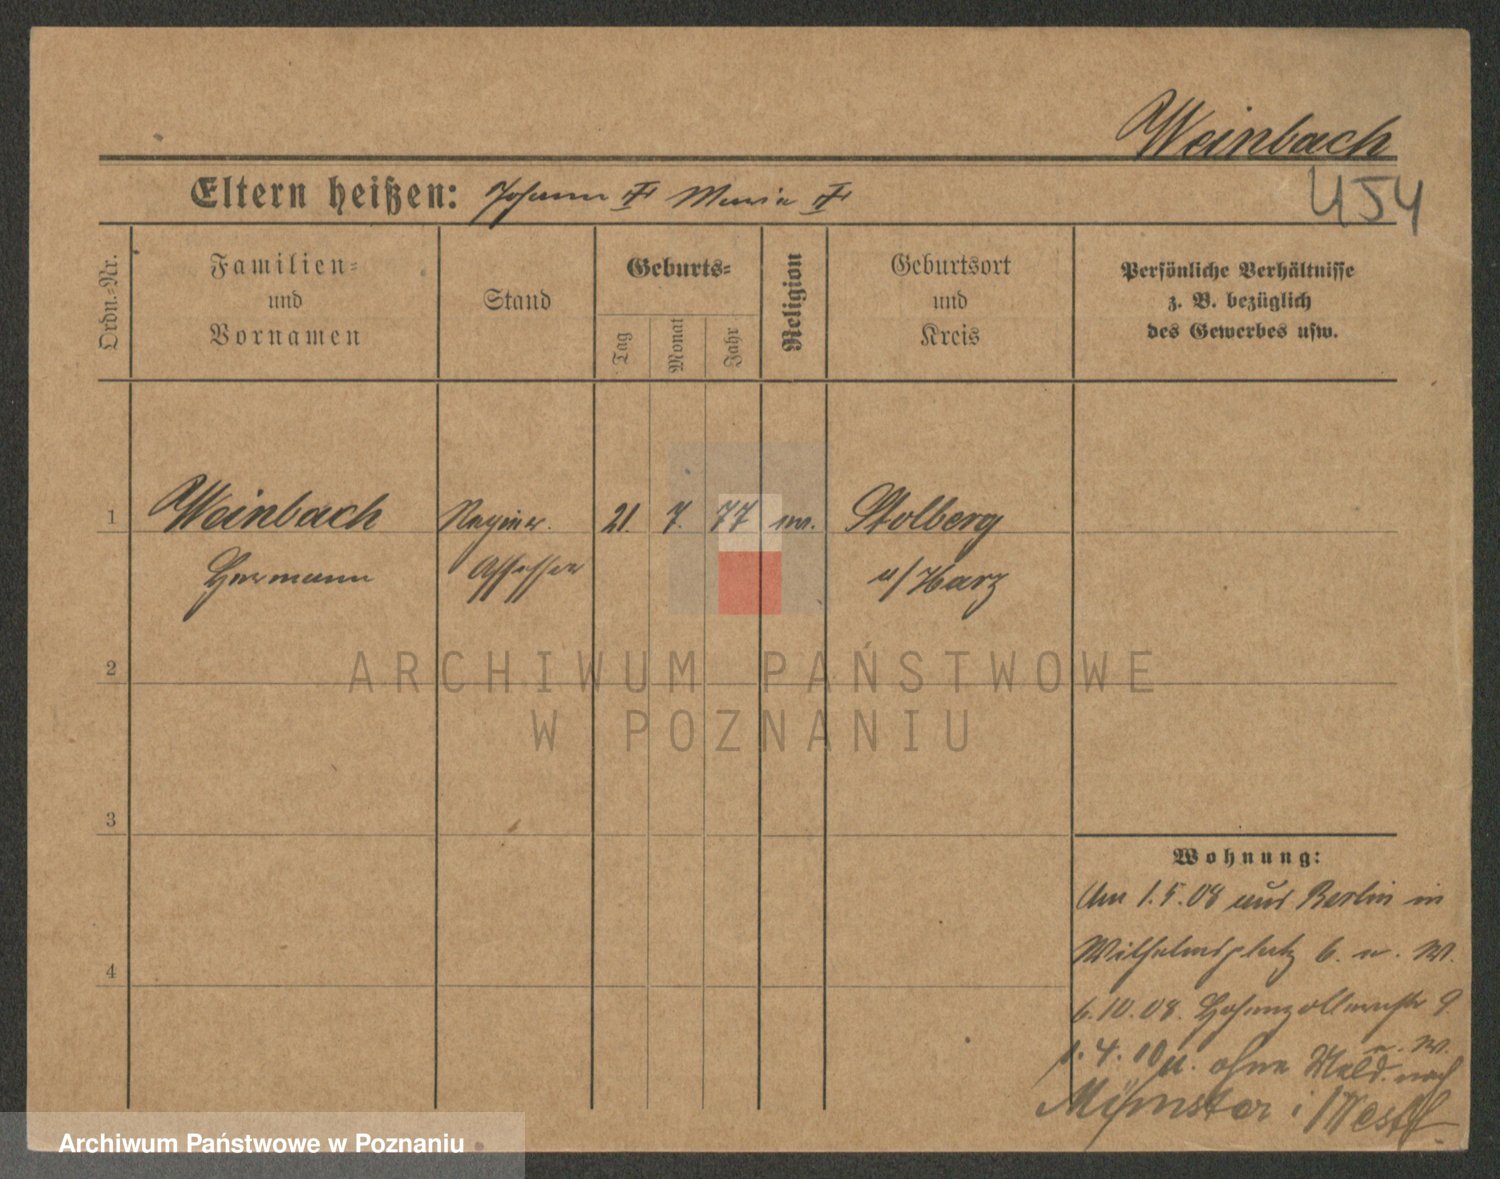 Weinbach
U54
Eltern heißen: Johann Maria
Ordn.-Nr.
Familien-
und
Vornamen
Stand
Geburts-
Tag
Monat
Jahr
Religion
Geburtsort
und
Kreis
Persönliche Verhältnisse
z. B. bezüglich
des Gewerbes usw.
1 Weinbach 21. 7. 77 Stolberg
Hermann Assessor a/Harz
2
3
4
Wohnung:
Am 1.5.08 aus Berlin in
Wilhelmsplatz 6. a. W.
6.10.08. Hohenzollernstr 9
a. W.
1.4.10 u. ohne Meld. nach
Münster i Westf.
ARCHIWUM PAŃSTWOWE
W POZNANIU
Archiwum Państwowe w Poznaniu